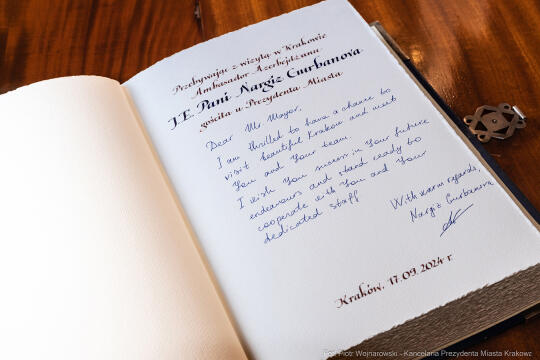 Przebywając z wizytą w Krakowie
Ambasador Azerbejdżanu
J.E. Pani Nargiz Gurbanova
gościła u Prezydenta Miasta
Dear Mr. Mayor,
I am thrilled to have a chance to
visit beautiful Krakow and meet
You and Your team.
I wish You success in Your future
endeavours and stand ready to
cooperate with You and Your
dedicated staff
With warm regards,
Nargiz Gurbanova
Kraków, 17.09.2024 r.
Fot. Piotr Wojnarowski - Kancelaria Prezydenta Miasta Krakowa